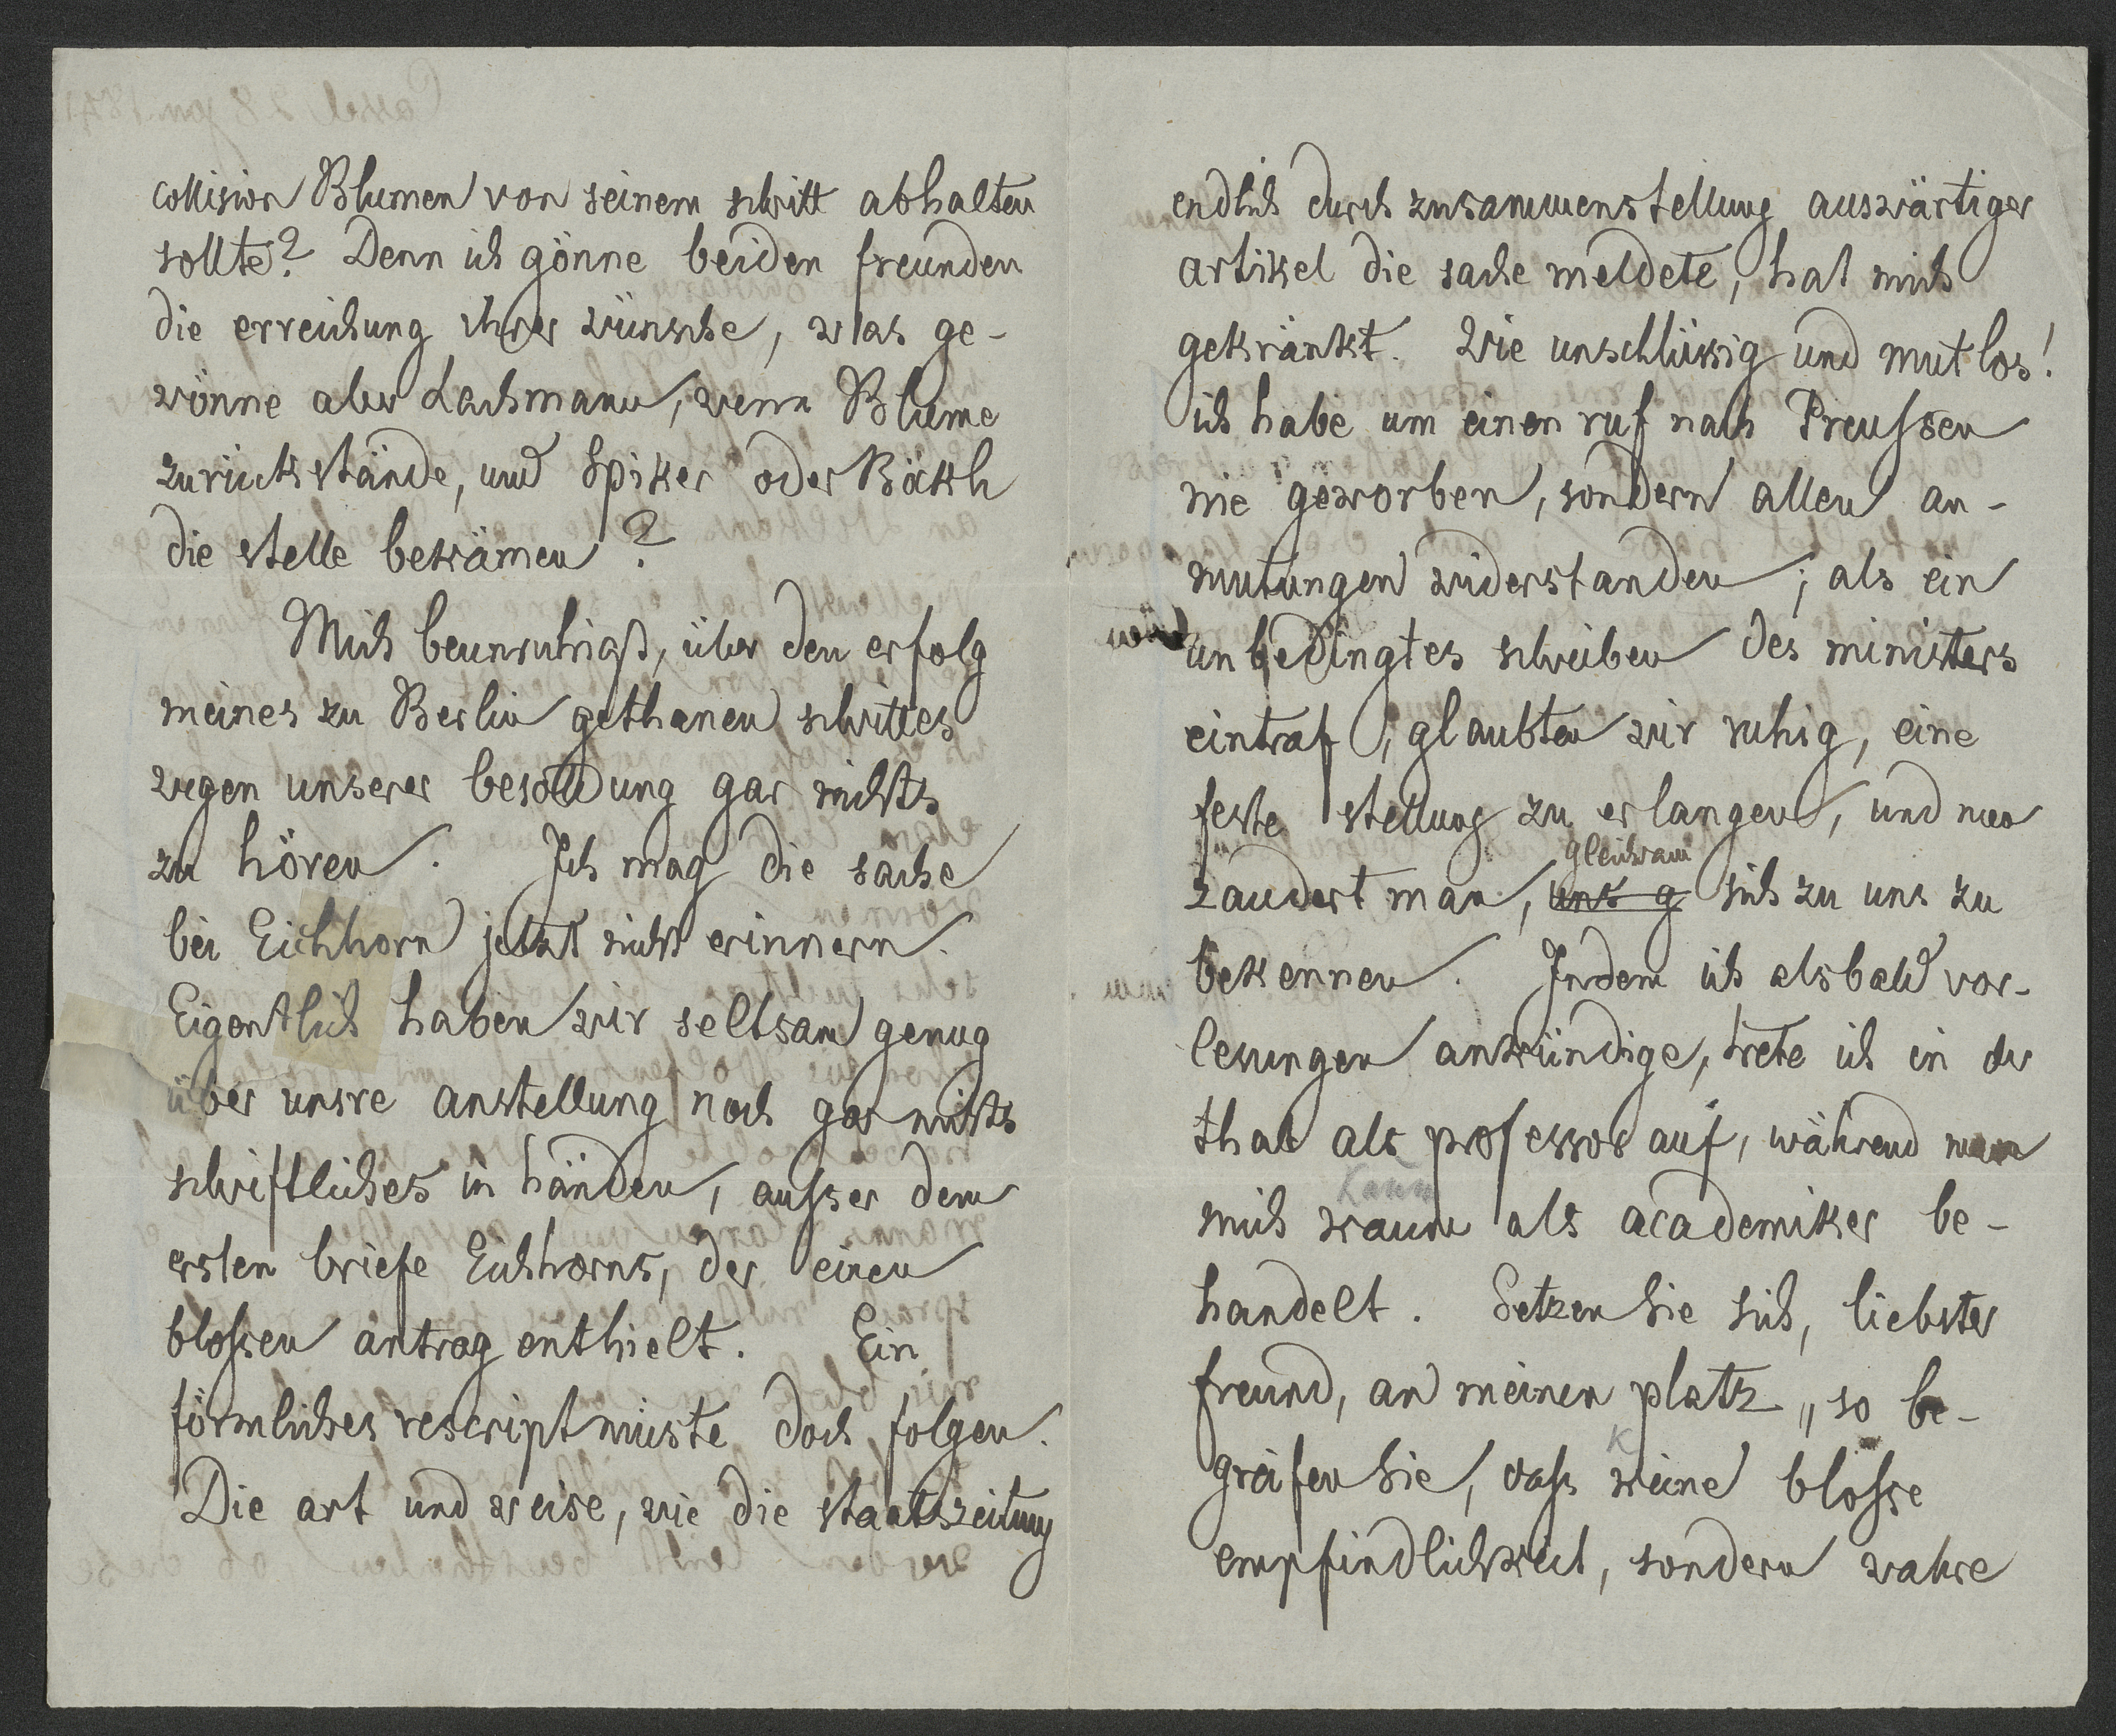 collision Blumen von seinem schritt abhalten
sollte? Denn ich gönne beiden freunden
die erreichung ihrer wünsche, was ge-
wönne aber Lachmann, wenn Blume
zurückstände, und Spiker oder Böckh
die stelle bekämen?
Mich beunruhigt, über den erfolg
meines zu Berlin gethanen schrittes
wegen unserer besoldung gar nichts
zu hören. Ich mag die sache
bei Eichhorn jetzt nicht erinnern.
Eigentlich haben wir seltsam genug
über unsre anstellung noch gar nichts
schriftliches in händen, ausser dem
ersten briefe Eichhorns, der einen
blossen antrag enthielt. Ein
förmliches rescript müste doch folgen.
Die art und weise, wie die staatszeitung
endlich durch zusammenstellung auswärtiger
artikel die sache meldete, hat mich
gekränkt. Wie unschlüssig und mutlos!
ich habe um einen ruf nach Preussen
nie geworben, sondern allen an-
mutungen widerstanden; als ein
unbedingtes schreiben des ministers
eintraf, glaubten wir ruhig, eine
feste stellung zu erlangen, und nun
gleichsam
zaudert man, uns g sich zu uns zu
bekennen. Indem ich alsbald vor-
lesungen ankündige, trete ich in der
that als professor auf, während man
kaum
mich kaum als academiker be-
handelt. Setzen Sie sich, liebster
freund, an meinen platz, so be-
k
greifen Sie, dass keine blosse
empfindlichkeit, sondern wahre